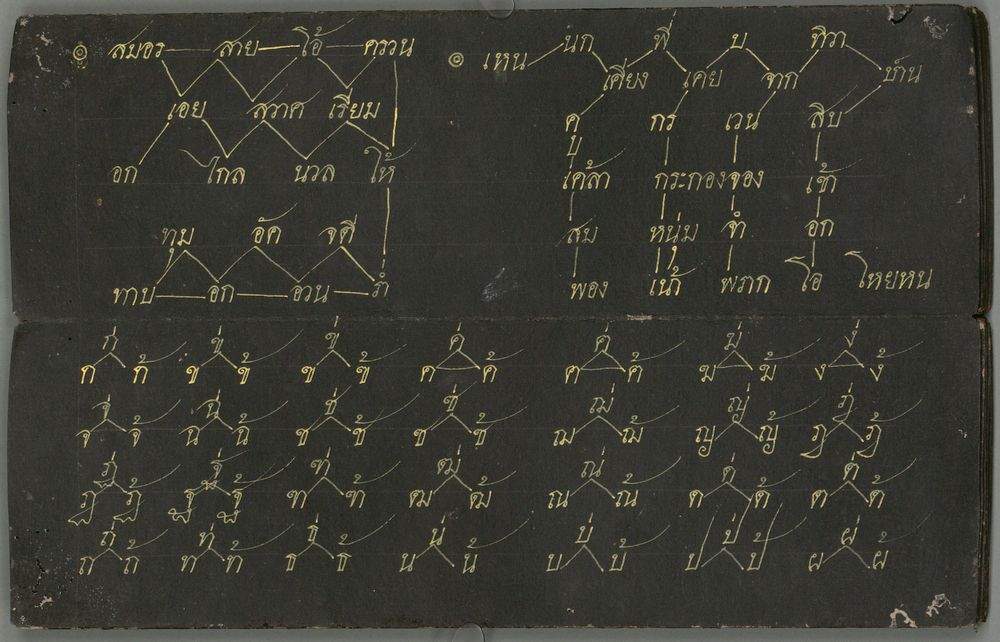 ๏ สมอร สาย โอ้ ครวน
เอย สวาศ เรียม
อก ไกล นวล ให้
ทุม อัค จตี
ทาบ อก อวน ร่ำ
๏ เหน นก พี่ บ ทิวา
เคียง เคย จาก บ้าน
คู กร เวน สิบ
เคล้า กระกอง จอง เช้า
สม หนุ่ม จำ อก
พอง เน้า พภก โอ โหยหน
ก่ ข่ ฃ่ ค่ ฅ่ ฆ่ ง่
ก ก้ ข ข้ ฃ ฃ้ ค ค้ ฅ ฅ้ ฆ ฆ้ ง ง้
จ่ ฉ่ ช่ ซ่ ฌ่ ญ่ ฎ่
จ จ้ ฉ ฉ้ ช ช้ ซ ซ้ ฌ ฌ้ ญ ญ้ ฎ ฎ้
ฏ่ ฐ่ ฑ่ ฒ่ ณ่ ด่ ต่
ฏ ฏ้ ฐ ฐ้ ฑ ฑ้ ฒ ฒ้ ณ ณ้ ด ด้ ต ต้
ถ่ ท่ ธ่ น่ บ่ ป่ ผ่
ถ ถ้ ท ท้ ธ ธ้ น น้ บ บ้ ป ป้ ผ ผ้